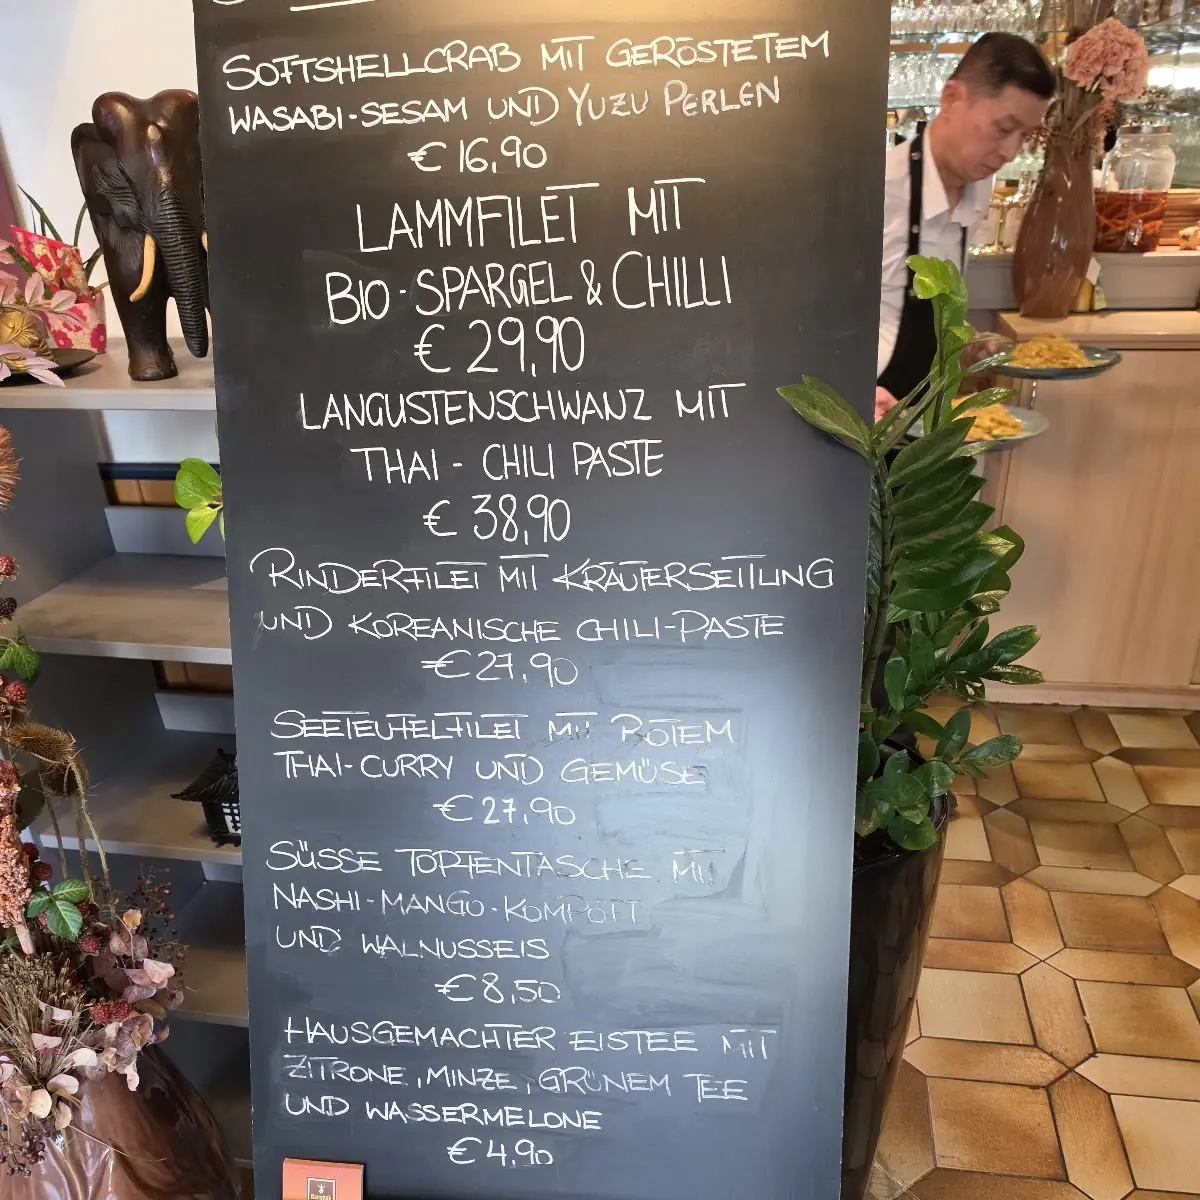 SOFTSHELLCRAB MIT GERÖSTETEM
WASABI-SESAM UND YUZU PERLEN
€ 16,90
LAMMFILET MIT
BIO-SPARGEL & CHILLI
€ 29,90
LANGUSTENSCHWANZ MIT
THAI- CHILI PASTE
€ 38,90
RINDERFILET MIT KRÄUTERSEITLING
UND KOREANISCHE CHILI-PASTE
€27,90
SEETEUFELFILET MIT ROTEM
THAI-CURRY UND GEMÜSE
€27,90
SÜSSE TOPFENTASCHE MIT
NASHI-MANGO-KOMPOTT
UND WALNUSSEIS
€8,50
HAUSGEMACHTER EISTEE MIT
ZITRONE, MINZE, GRÜNEM TEE
UND WASSERMELONE
€4,90